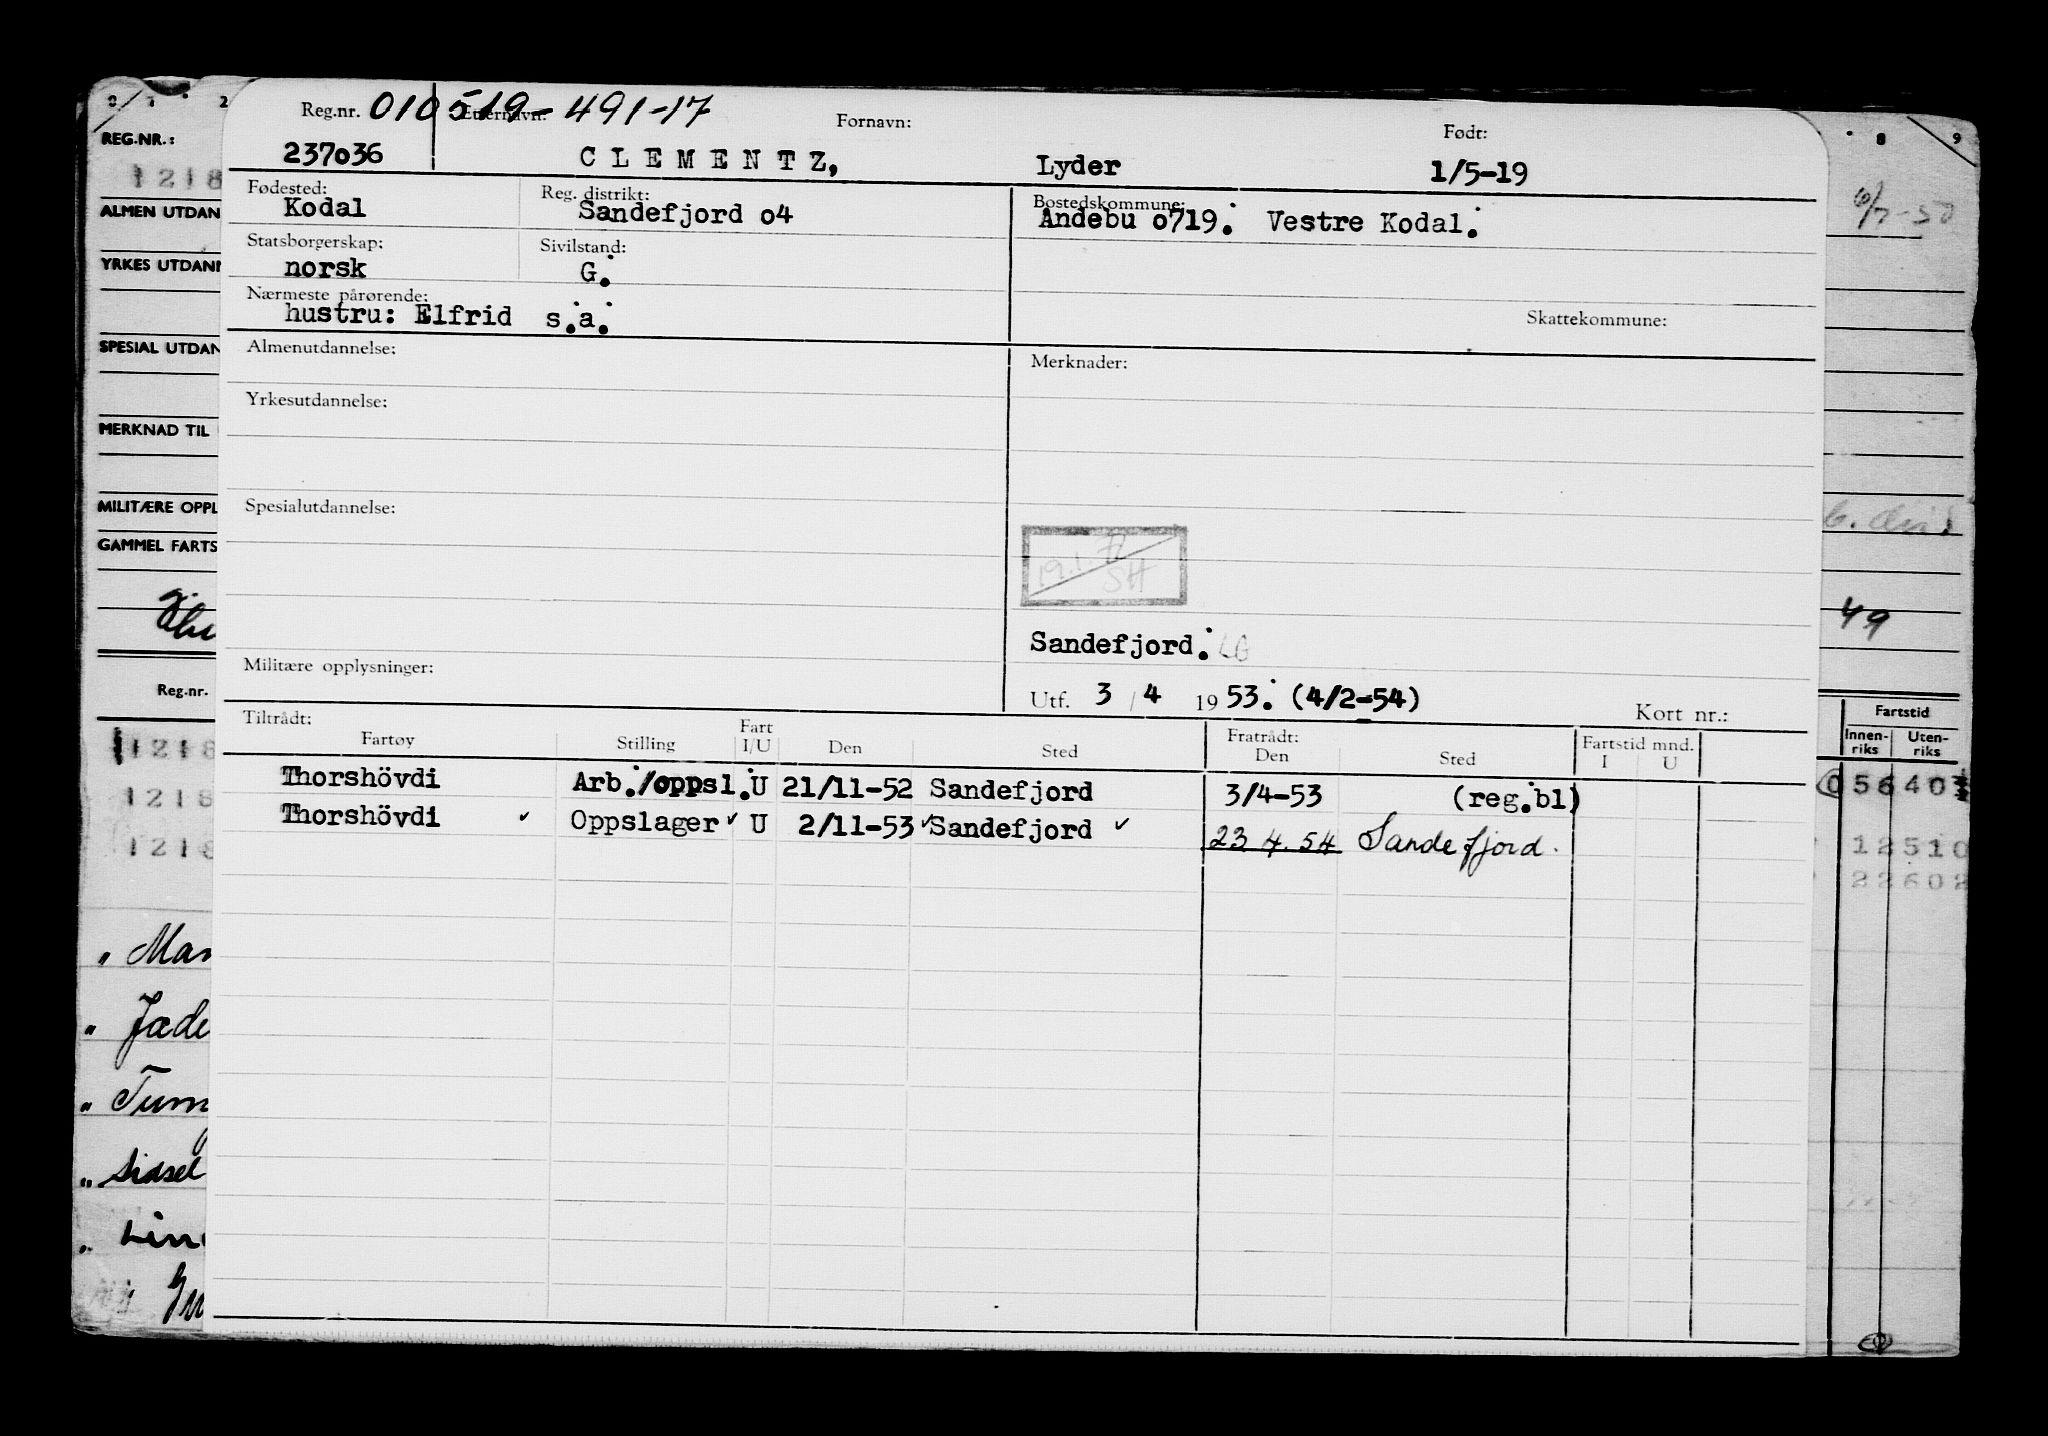 Reg.nr. 010519-491-17 Etternavn: Fornavn: Født:
237036 CLEMENTZ, Lyder 1/5-19
Fødested: Reg. distrikt: Bostedskommune:
Kodal Sandefjord o4 Andebu o719. Vestre Kodal.
Statsborgerskap: Sivilstand:
norsk G.
Nærmeste pårørende:
hustru: Elfrid s.a. Skattekommune:
Almenutdannelse: Merknader:
Yrkesutdannelse:
Spesialutdannelse:
19.1.72
SH
Sandefjord. LG
Militære opplysninger:
Utf. 3 / 4 19 53. (4/2-54) Kort nr.:
Tiltrådt: Fart Fratrådt: Fartstid mnd.
Fartøy Stilling I/U Den Sted Den Sted I U
Thorshövdi Arb./oppsl. U 21/11-52 Sandefjord 3/4-53 (reg.bl)
Thorshövdi Oppslager U 2/11-53 Sandefjord 23.4.54 Sandefjord.
REG.NR.:
1218
ALMEN UTDAN
YRKES UTDANN
SPESIAL UTDAN
MERKNAD TIL
MILITÆRE OPPL
GAMMEL FARTS
Reg.nr.
1218
1218
1218
" Man
" Jade
" Turn
" Sidsel
8 9
6/7-50
49
Fartstid
Innen-riks Uten-riks
056403
12510
22602